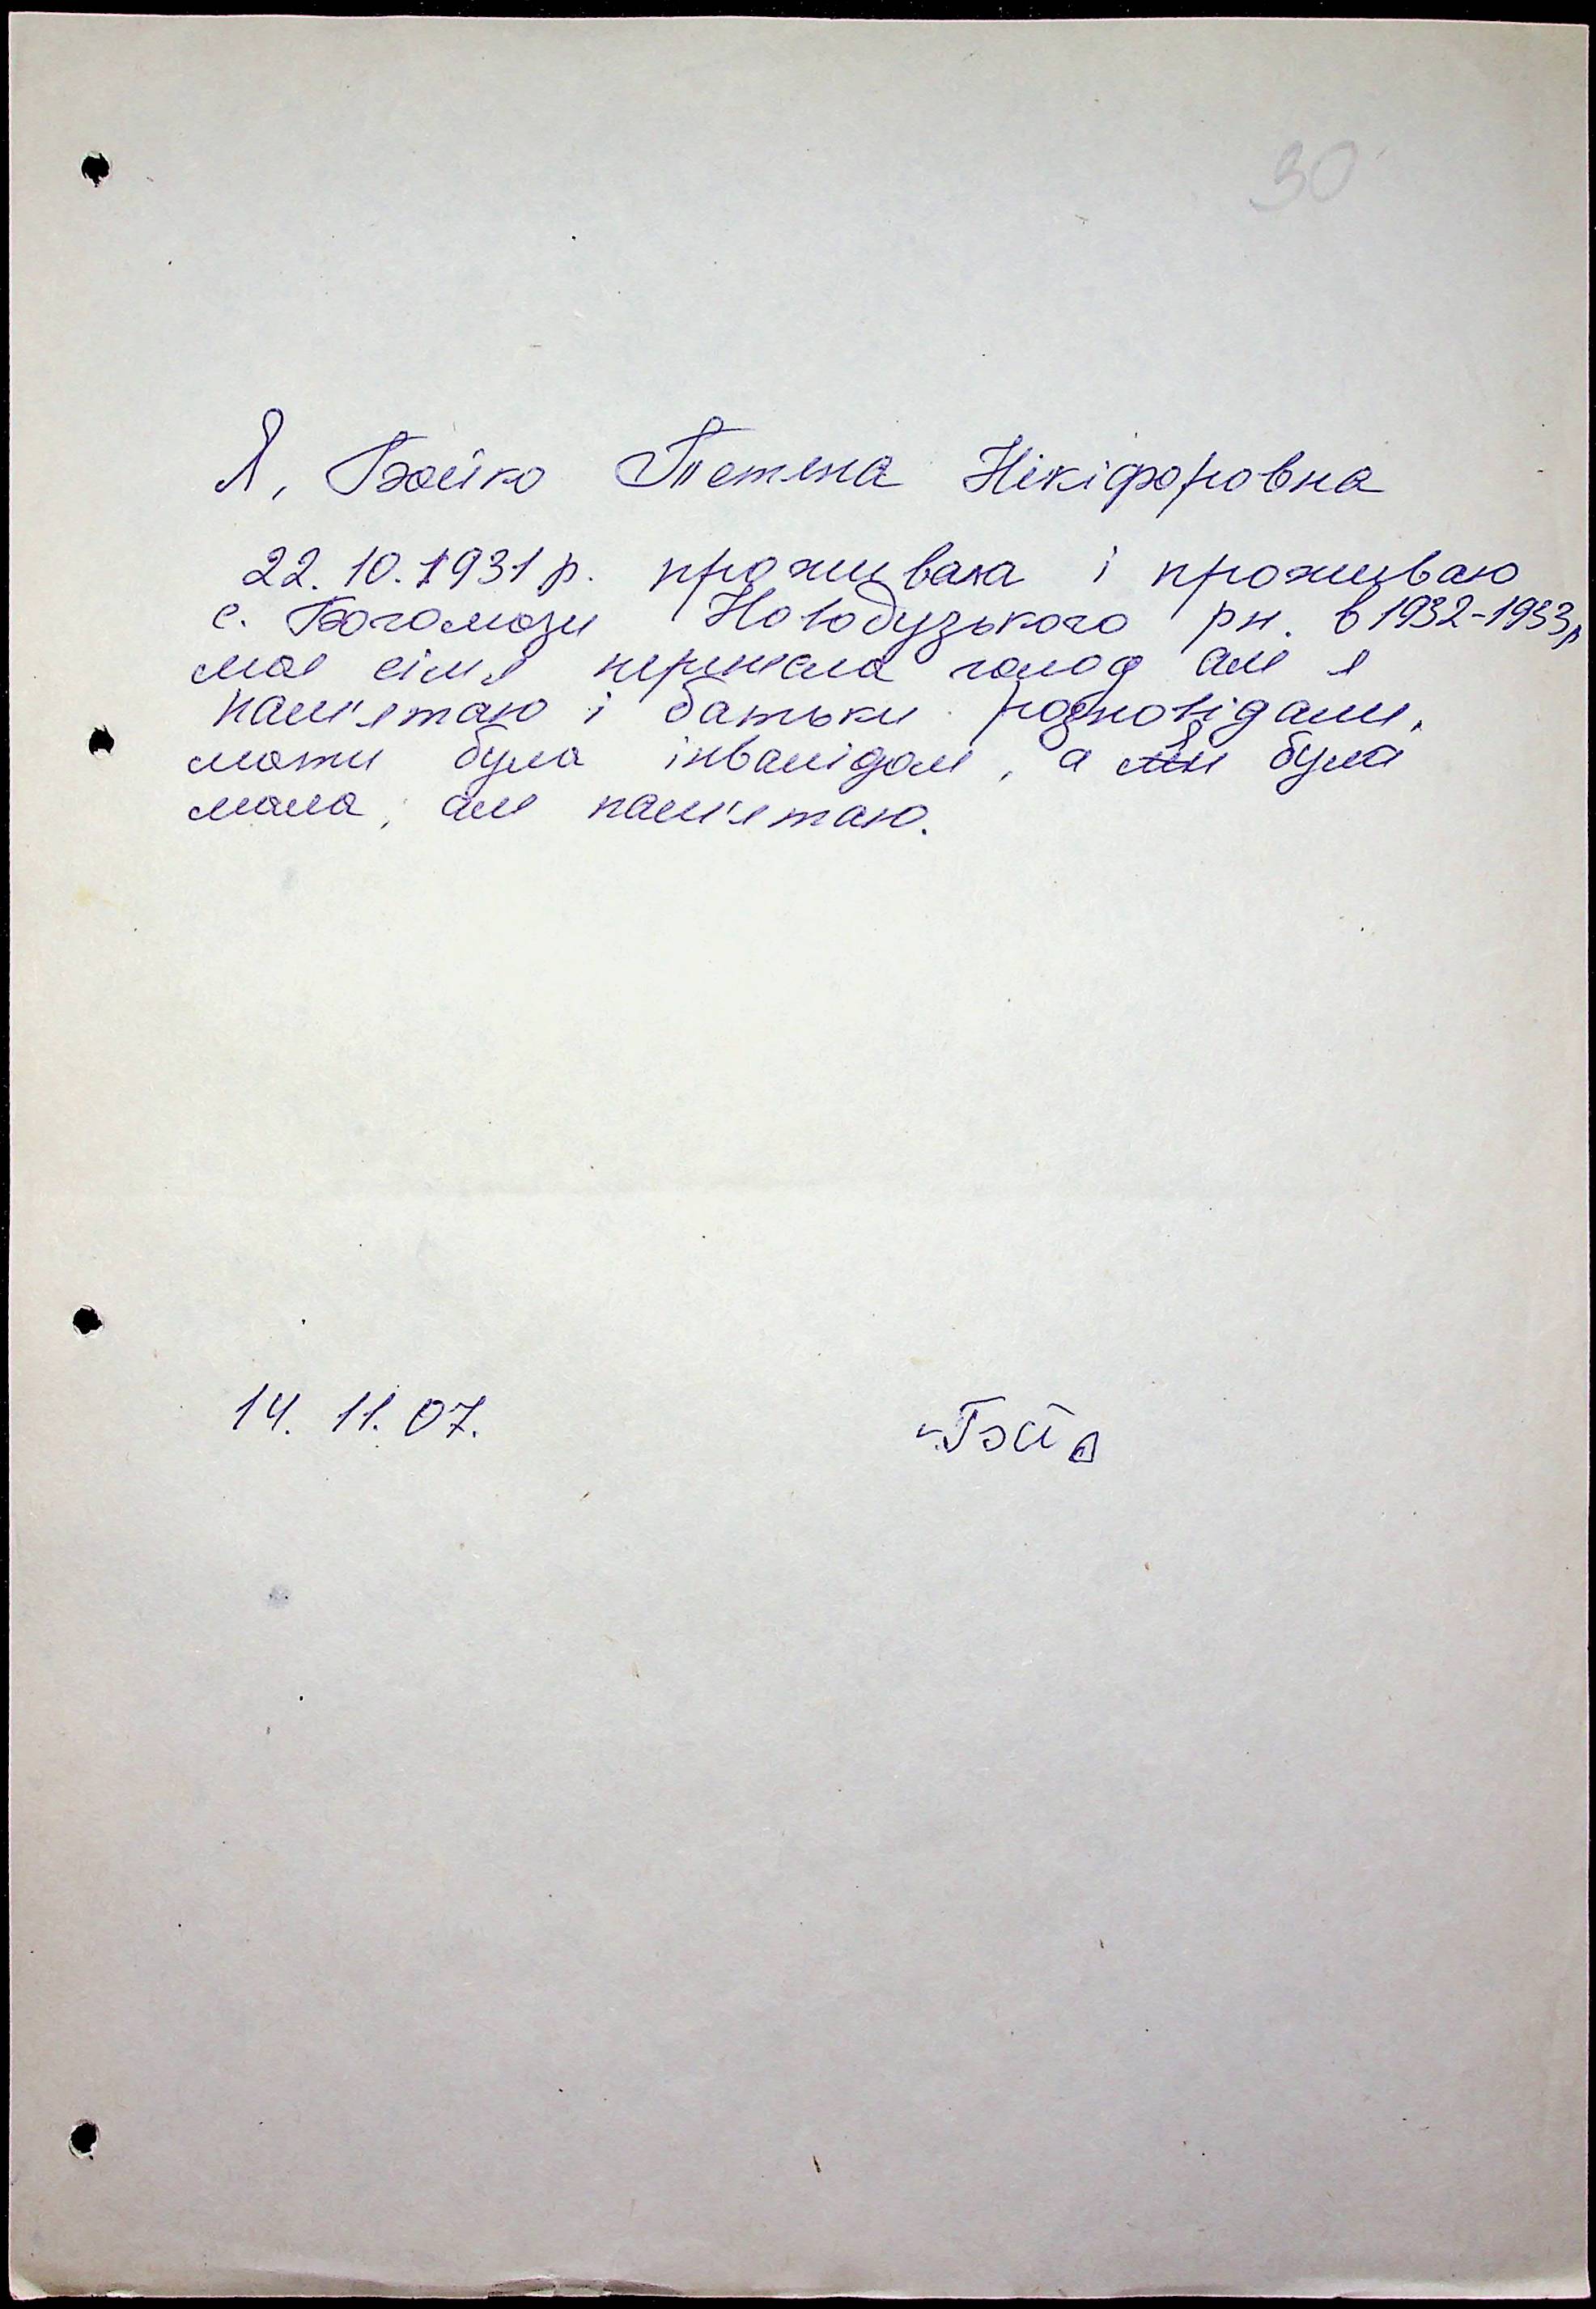 30
Я, Бойко Тетяна Нікіфоровна
22.10.1931 р. проживала і проживаю
с. Богомази Новобузького рн. в 1932-1933р
моя сімя перенесла голод але я
пам'ятаю і батьки розповідали,
мати була інвалідом, а я була
мала, але пам'ятаю.
14. 11. 07.